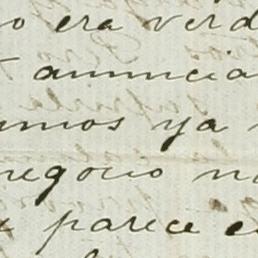 o era verd
anuncia
amos ya
negocio n
parece e